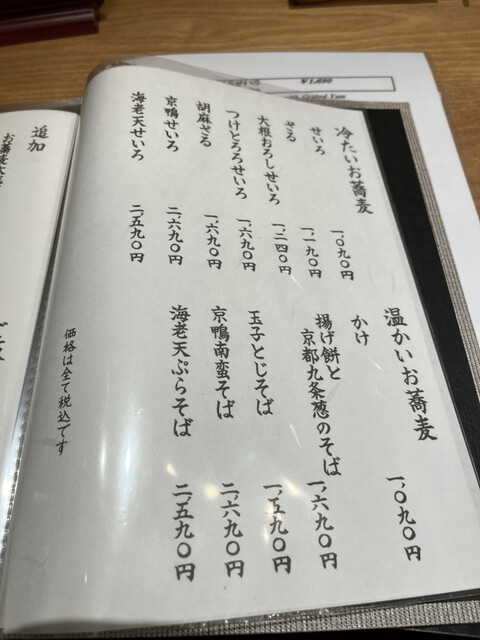 冷たいお蕎麦
せいろ 一、〇九〇円
ざる 一、一九〇円
大根おろしせいろ 一、二四〇円
つけとろろせいろ 一、六九〇円
胡麻ざる 一、六九〇円
京鴨せいろ 二、六九〇円
海老天せいろ 二、五九〇円
温かいお蕎麦
かけ 一、〇九〇円
揚げ餅と
京都九条葱のそば 一、六九〇円
玉子とじそば 一、五九〇円
京鴨南蛮そば 二、六九〇円
海老天ぷらそば 二、五九〇円
価格は全て税込です
追加
Grated Yam